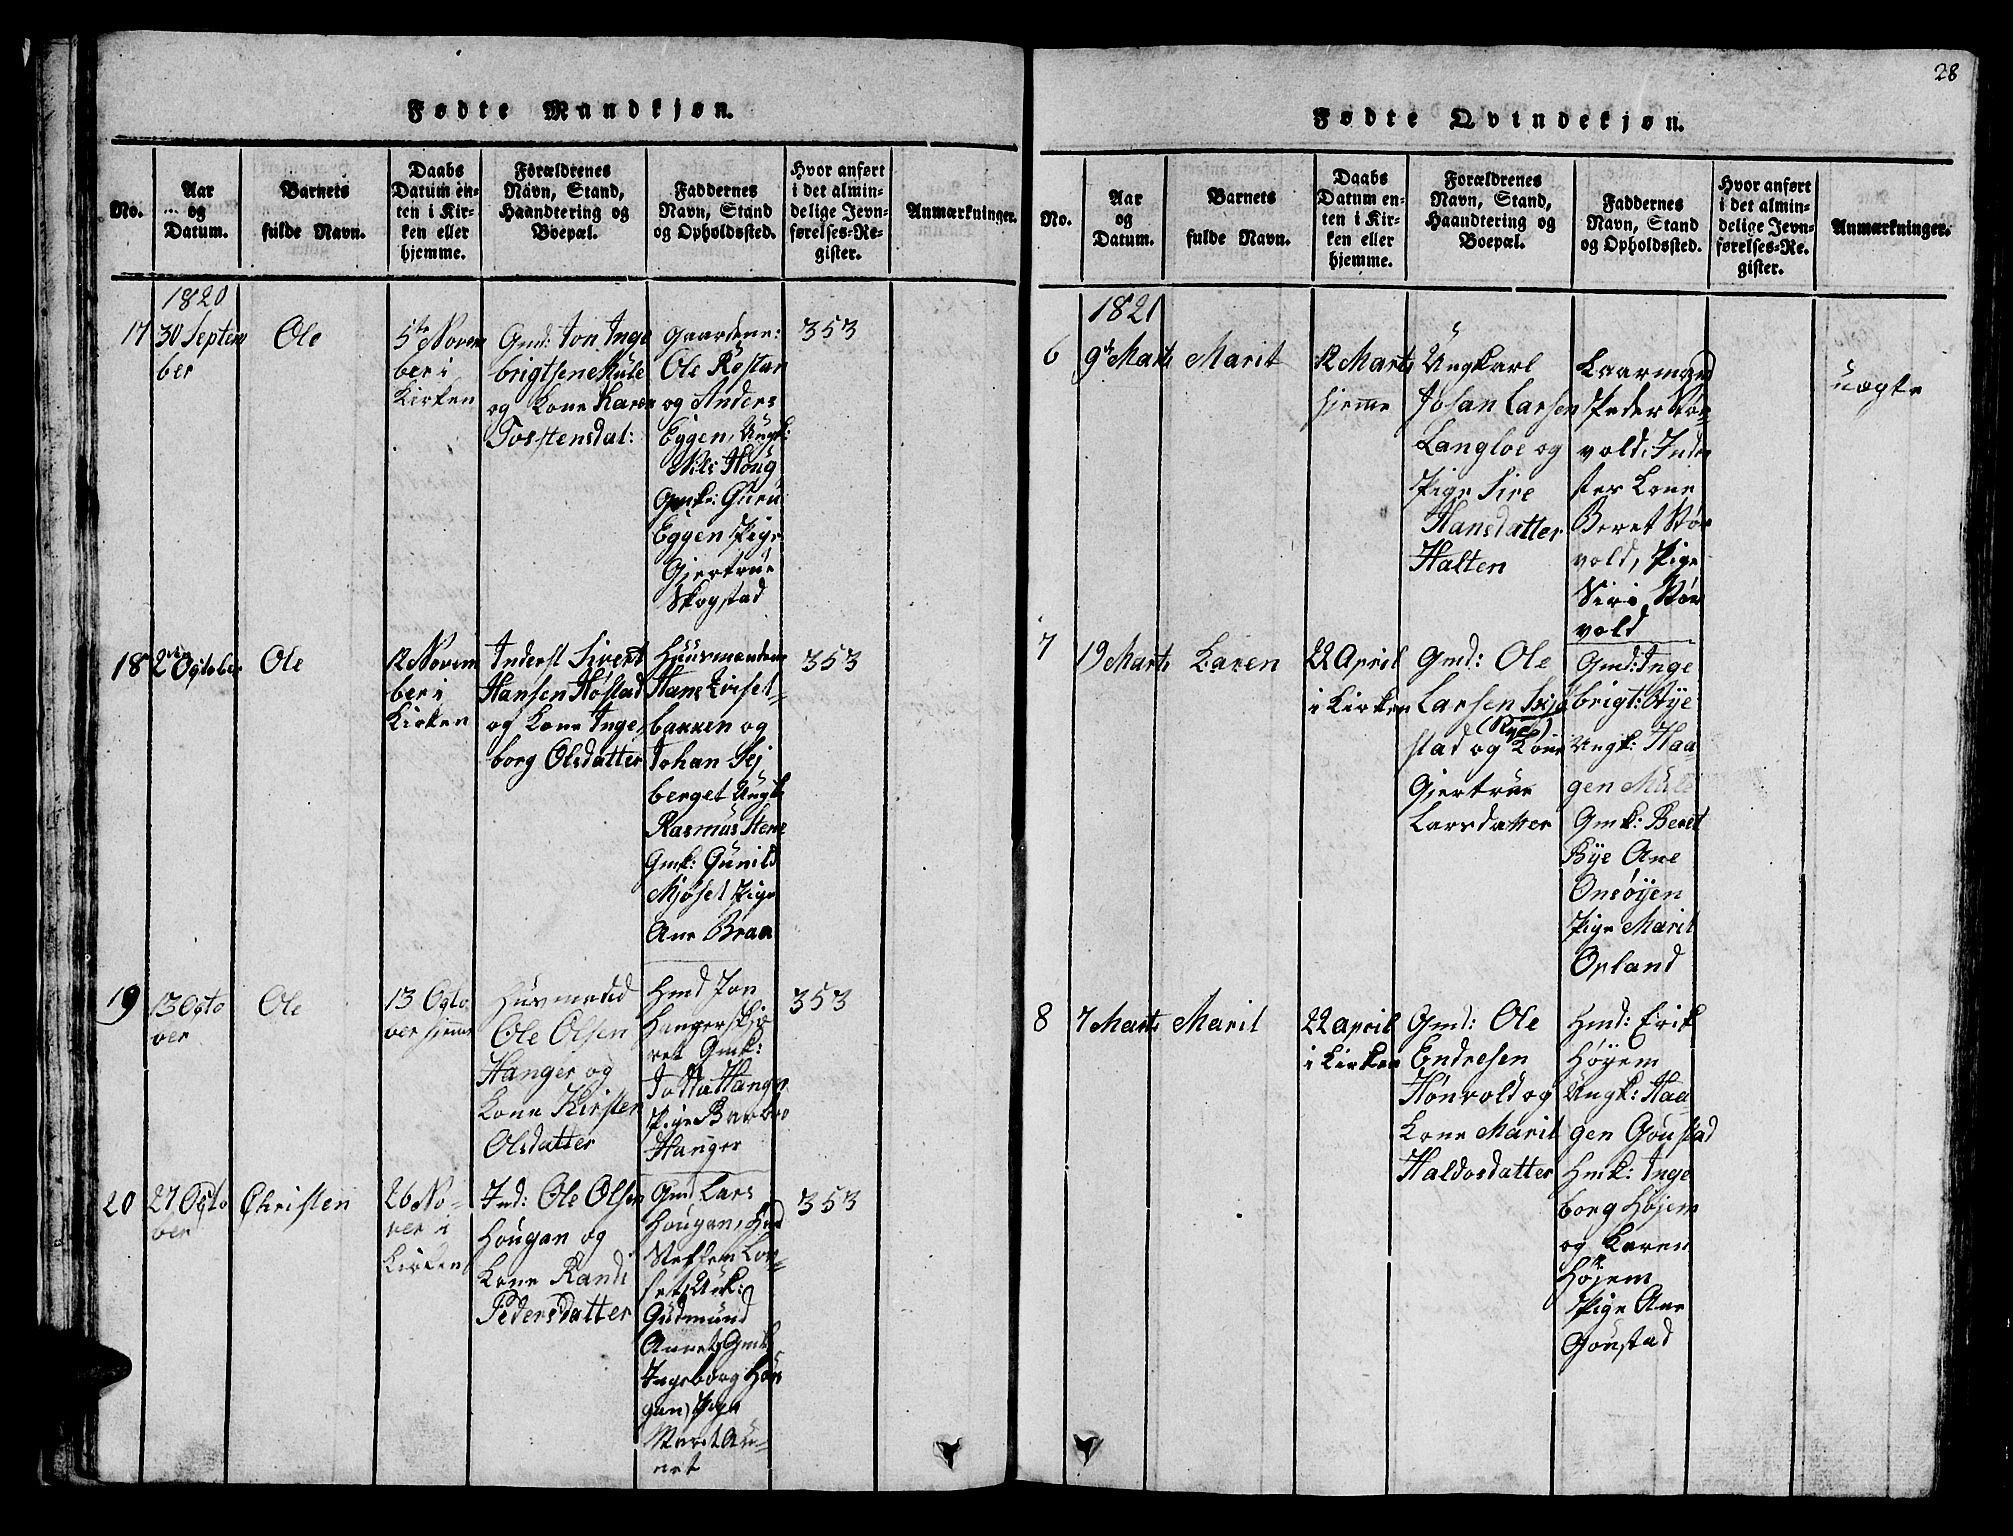 28
Fødte Mandkjøn.
No.
Aar
og
Datum.
Barnets
fulde Navn.
Daabs
Datum en-
ten i Kir-
ken eller
hjemme.
Forældrenes
Navn, Stand,
Haandtering og
Boepæl.
Faddernes
Navn, Stand
og Opholdssted.
Hvor anført
i det almin-
delige Jevn-
førelses-Re-
gister.
Anmærkninger.
1820
17
30 Septem
ber
Ole
5te Novem
ber i
Kirken
Gmd: Jon Inge
brigtsen Mule
og Kone Karen
Tostensdat:
Gaardmæ:
Ole Røstan
og Anders
Eggen, Ungk:
Nils Houg
Gmk: Guru
Eggen Pige
Gjertrue
Skogstad
353
18
2den October
Ole
12 Novem
ber i
Kirken
Inderst Sivert
Hansen Høstad
og Kone Inge
borg Olsdatter
Huusmændene
Hans
bakken og
Johan
berget Ungk
Rasmus Stene
Gmk: Gunild
Mjøset Pige
Ane Braa
353
19
13 Octo
ber
Ole
13 Octo
ber hjemme
Husmand
Ole Olsen
Hanger og
Kone Kirsten
Olsdatter
Hmd Jon
Hangerskjæ
ret Gmk:
Hanger
Pige Barbro
Hanger
353
20
27 Octo
ber
Christen
26 No-
ver i
Kirken
Ind: Ole Olsen
Hougan og
Kone Randi
Pedersdatter
Gmd Lars
Hougan, Hmd
Steffen Lon-
set, Unk:
Gudmund
Aunet, Gmk
Ingeborg Hou
gan, Pige
Marit Au-
net
353
Fødte Qvindekjøn.
No.
Aar
og
Datum.
Barnets
fulde Navn.
Daabs
Datum en-
ten i Kir-
ken eller
hjemme.
Forældrenes
Navn, Stand,
Haandtering og
Boepæl.
Faddernes
Navn, Stand
og Opholdssted.
Hvor anført
i det almin-
delige Jevn-
førelses-Re-
gister.
Anmærkninger.
1821
6
9de Marts
Marit
12 Marts
hjemme
Ungkarl
Johan Larsen
Langloe og
Pige Sire
Hansdatter
Halten
Laarmand
Peder Stør
vold, Inder
stes Kone
Beret Stør
vold, Pige
Siri Stør
vold
uægte
7
19 Marts
Karen
22 April
i Kirken
Gmd: Ole
Larsen Skje
(Rye)
stad og Kone
Gjertrue
Larsdatter
Gmd: Inge
brigt: Bye
Ungk: Haa
gen Mule
Gmk: Beret
Bye Ane
Onsøyen
Pige Marit
Opland
8
7 Marts
Marit
22 April
i Kirken
Gmd: Ole
Endresen
Hønvold og
Kone Marit
Haldosdatter
Hmd: Erik
Høyem
Ungk: Haa
gen Goustad
Hmk: Inge
borg Højem
og Karen
Højem
Pige Ane
Goustad